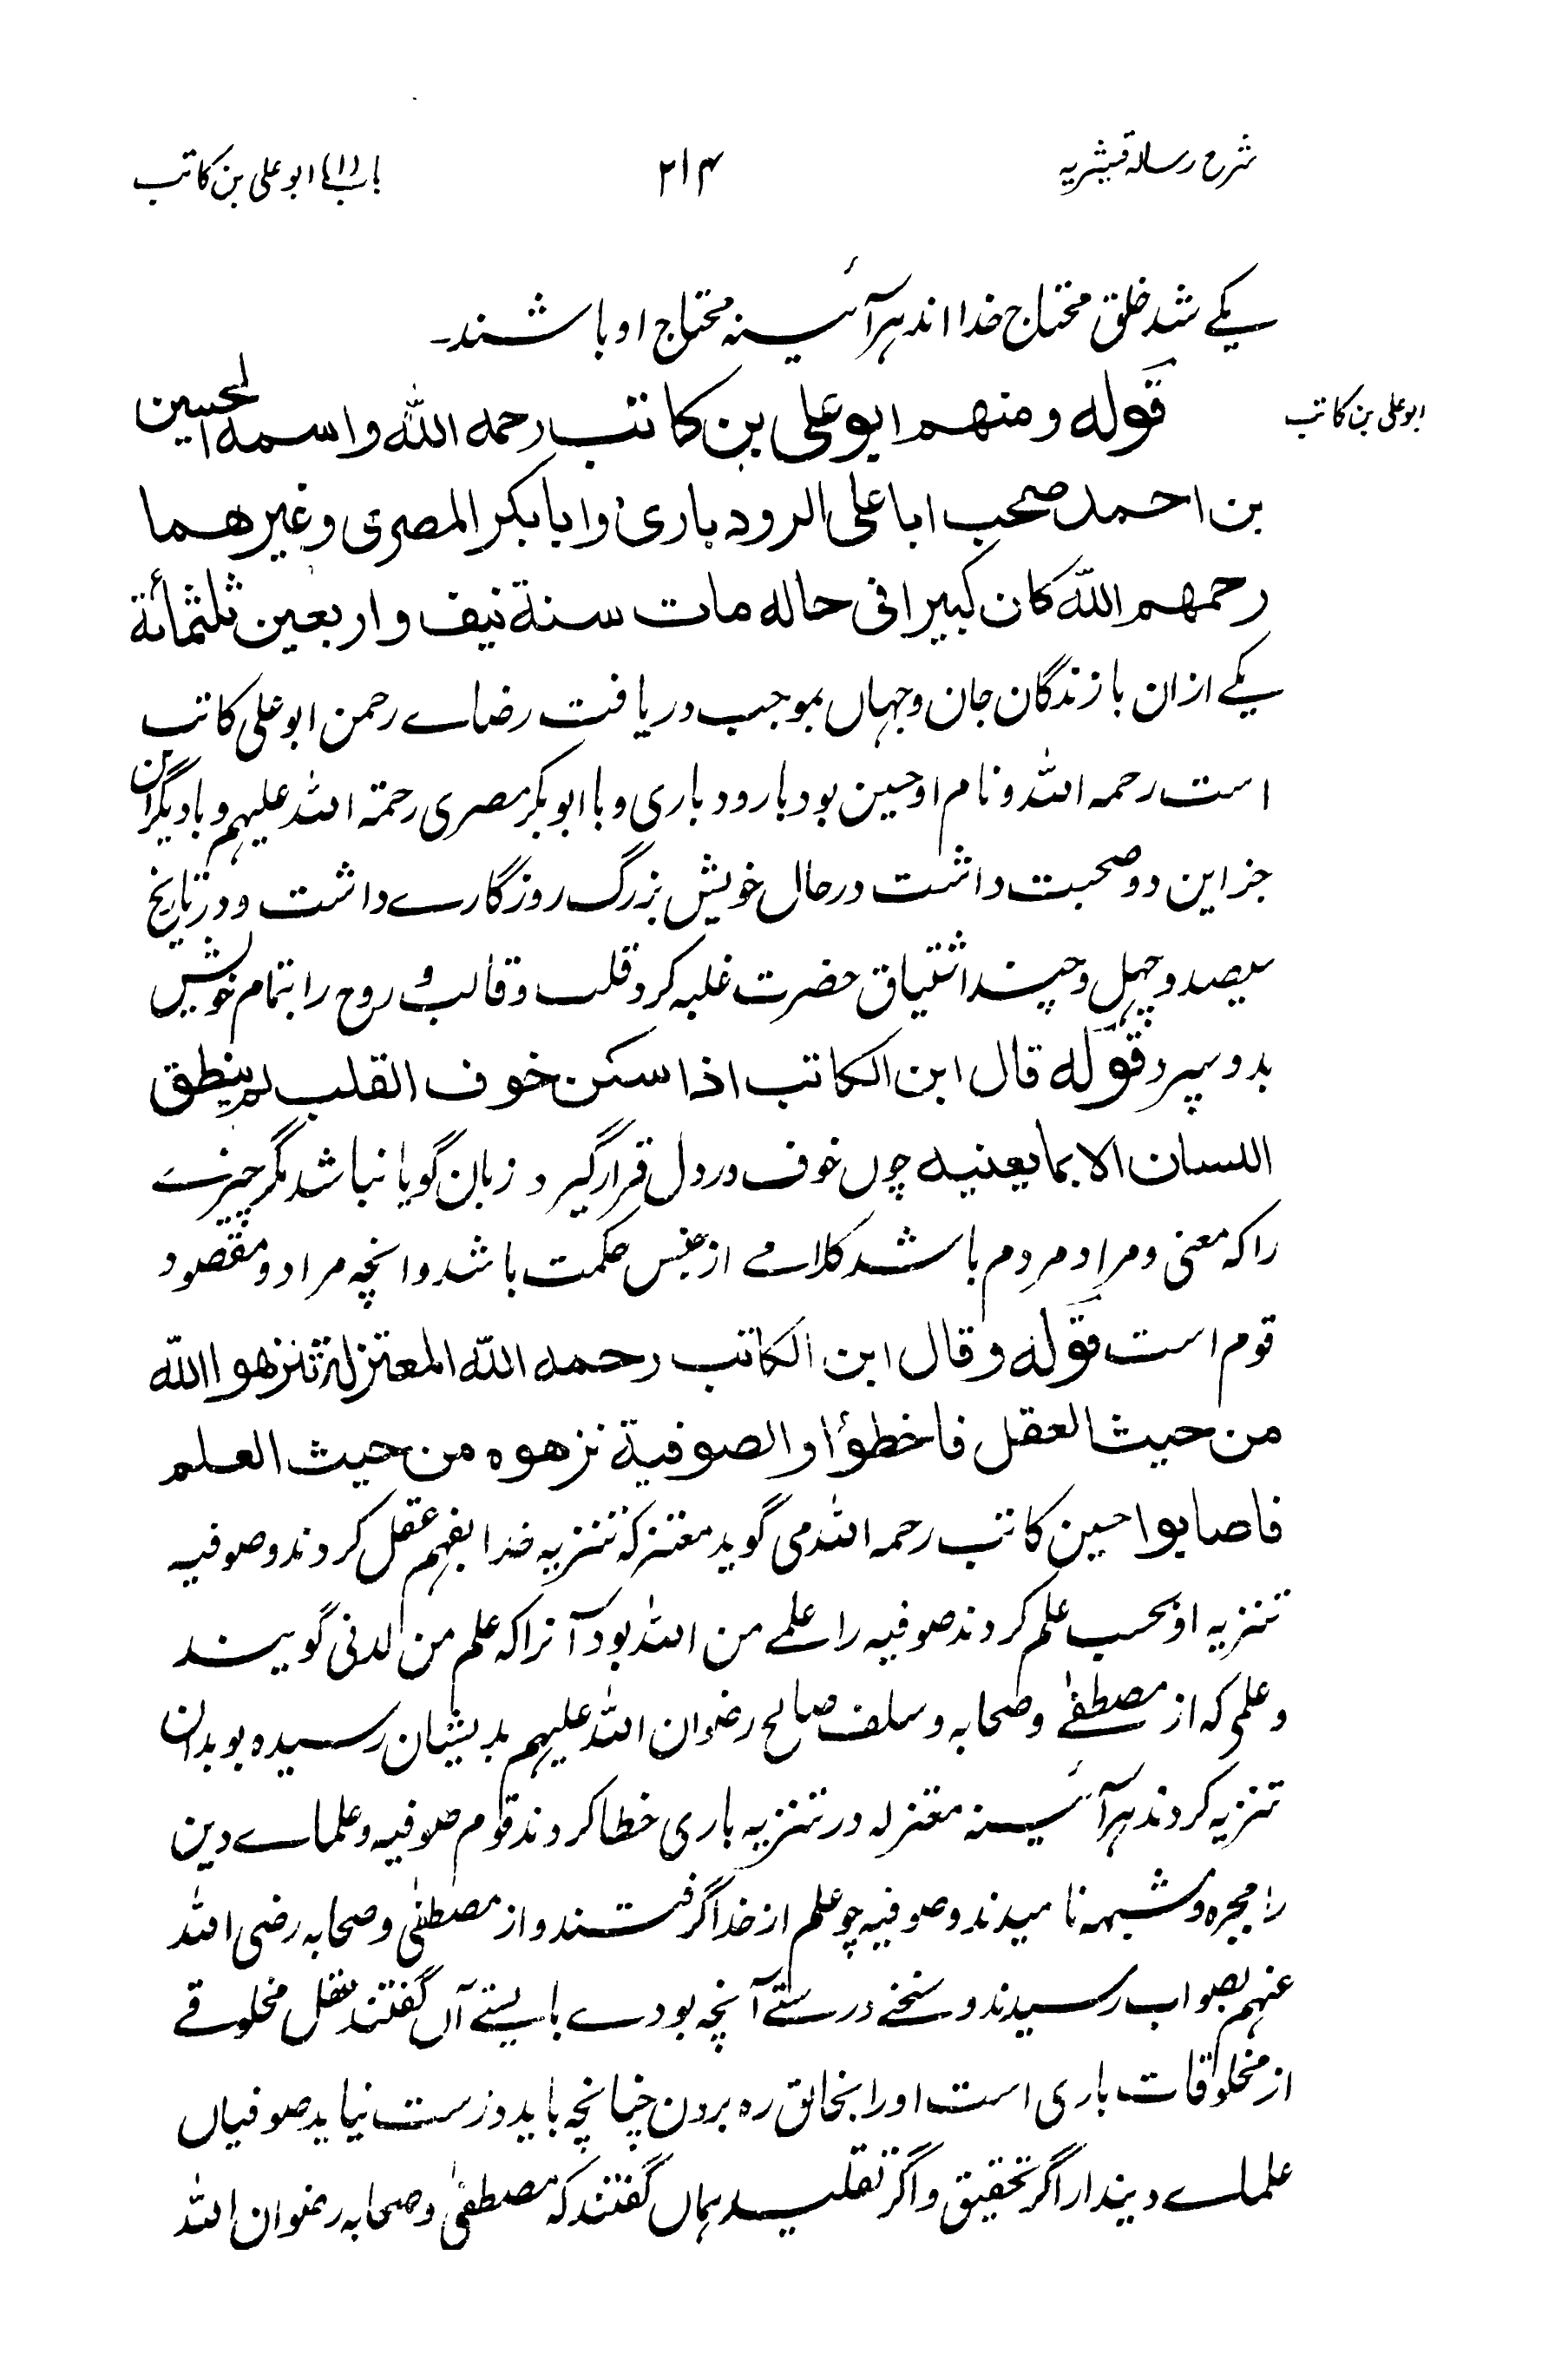 شرح رسالہ قشیریہ ۲۱۴ باب (۱) ابو علی بن کاتب
یکے شد خلق محتاج خدا اند ہر آئینہ محتاج او باشند۔
ابو علی بن کاتب
قوله ومنهم ابو علی بن کاتب رحمه الله واسمه الحسین
بن احمد صحب ابا علی الرودباری وابا بکر المصری وغیرهما
رحمهم الله کان کبیرا فی حاله مات سنة نیف واربعین ثلثمائة
یکے ازان بازندگان جان و جہاں بموجب دریافت رضاے رحمن ابو علی کاتب
است رحمہ اللہ و نام او حسین بود با رودباری و با ابوبکر مصری رحمۃ اللہ علیہم و با دیگران
جز این دو صحبت داشت در حال خویش بزرگ روزگارے داشت و در تاریخ
سیصد و چہل و چند اشتیاق حضرت غلبہ کرد قلب و قالب و روح را بتمام خویش
بدو سپرد قوله قال ابن الکاتب اذا سکن خوف القلب لم ینطق
اللسان الا بما یعنیه چوں خوف در دل قرار گیرد زبان گویا نباشد مگر چیزے
را کہ معنی و مراد مردم باشد کلامے از جنس حکمت باشد و انچہ مراد و مقصود
قوم است قوله وقال ابن الکاتب رحمه الله المعتزلة نزهوا الله
من حیث العقل فاخطؤا والصوفیة نزهوه من حیث العلم
فاصابوا حسین کاتب رحمہ اللہ می گوید معتزلہ تنزیہ خدا بفہم عقل کردند و صوفیہ
تنزیہ او بحسب علم کردند صوفیہ را علمے من اللہ بود آنرا کہ علم من لدنی گویند
و علمی کہ از مصطفےٰ و صحابہ و سلف صالح رضوان اللہ علیہم بدیشان رسیدہ بود بدان
تنزیہ کردند ہر آئینہ معتزلہ در تنزیہ باری خطا کردند قوم صوفیہ و علماے دین
را مجبرہ و مشبہہ نامیدند و صوفیہ چو علم از خدا گرفتند و از مصطفٰی و صحابہ رضی اللہ
عنہم بصواب رسیدند و سخنے درستے آنچہ بودے بایستے آں گفتند عقل مخلوقے
از مخلوقات باری است او را بخالق رہ بردن چنانچہ باید درست نیاید صوفیاں
علماے دیندار اگر تحقیق و اگر تقلید ہماں گفتند کہ مصطفٰی و صحابہ رضوان اللہ